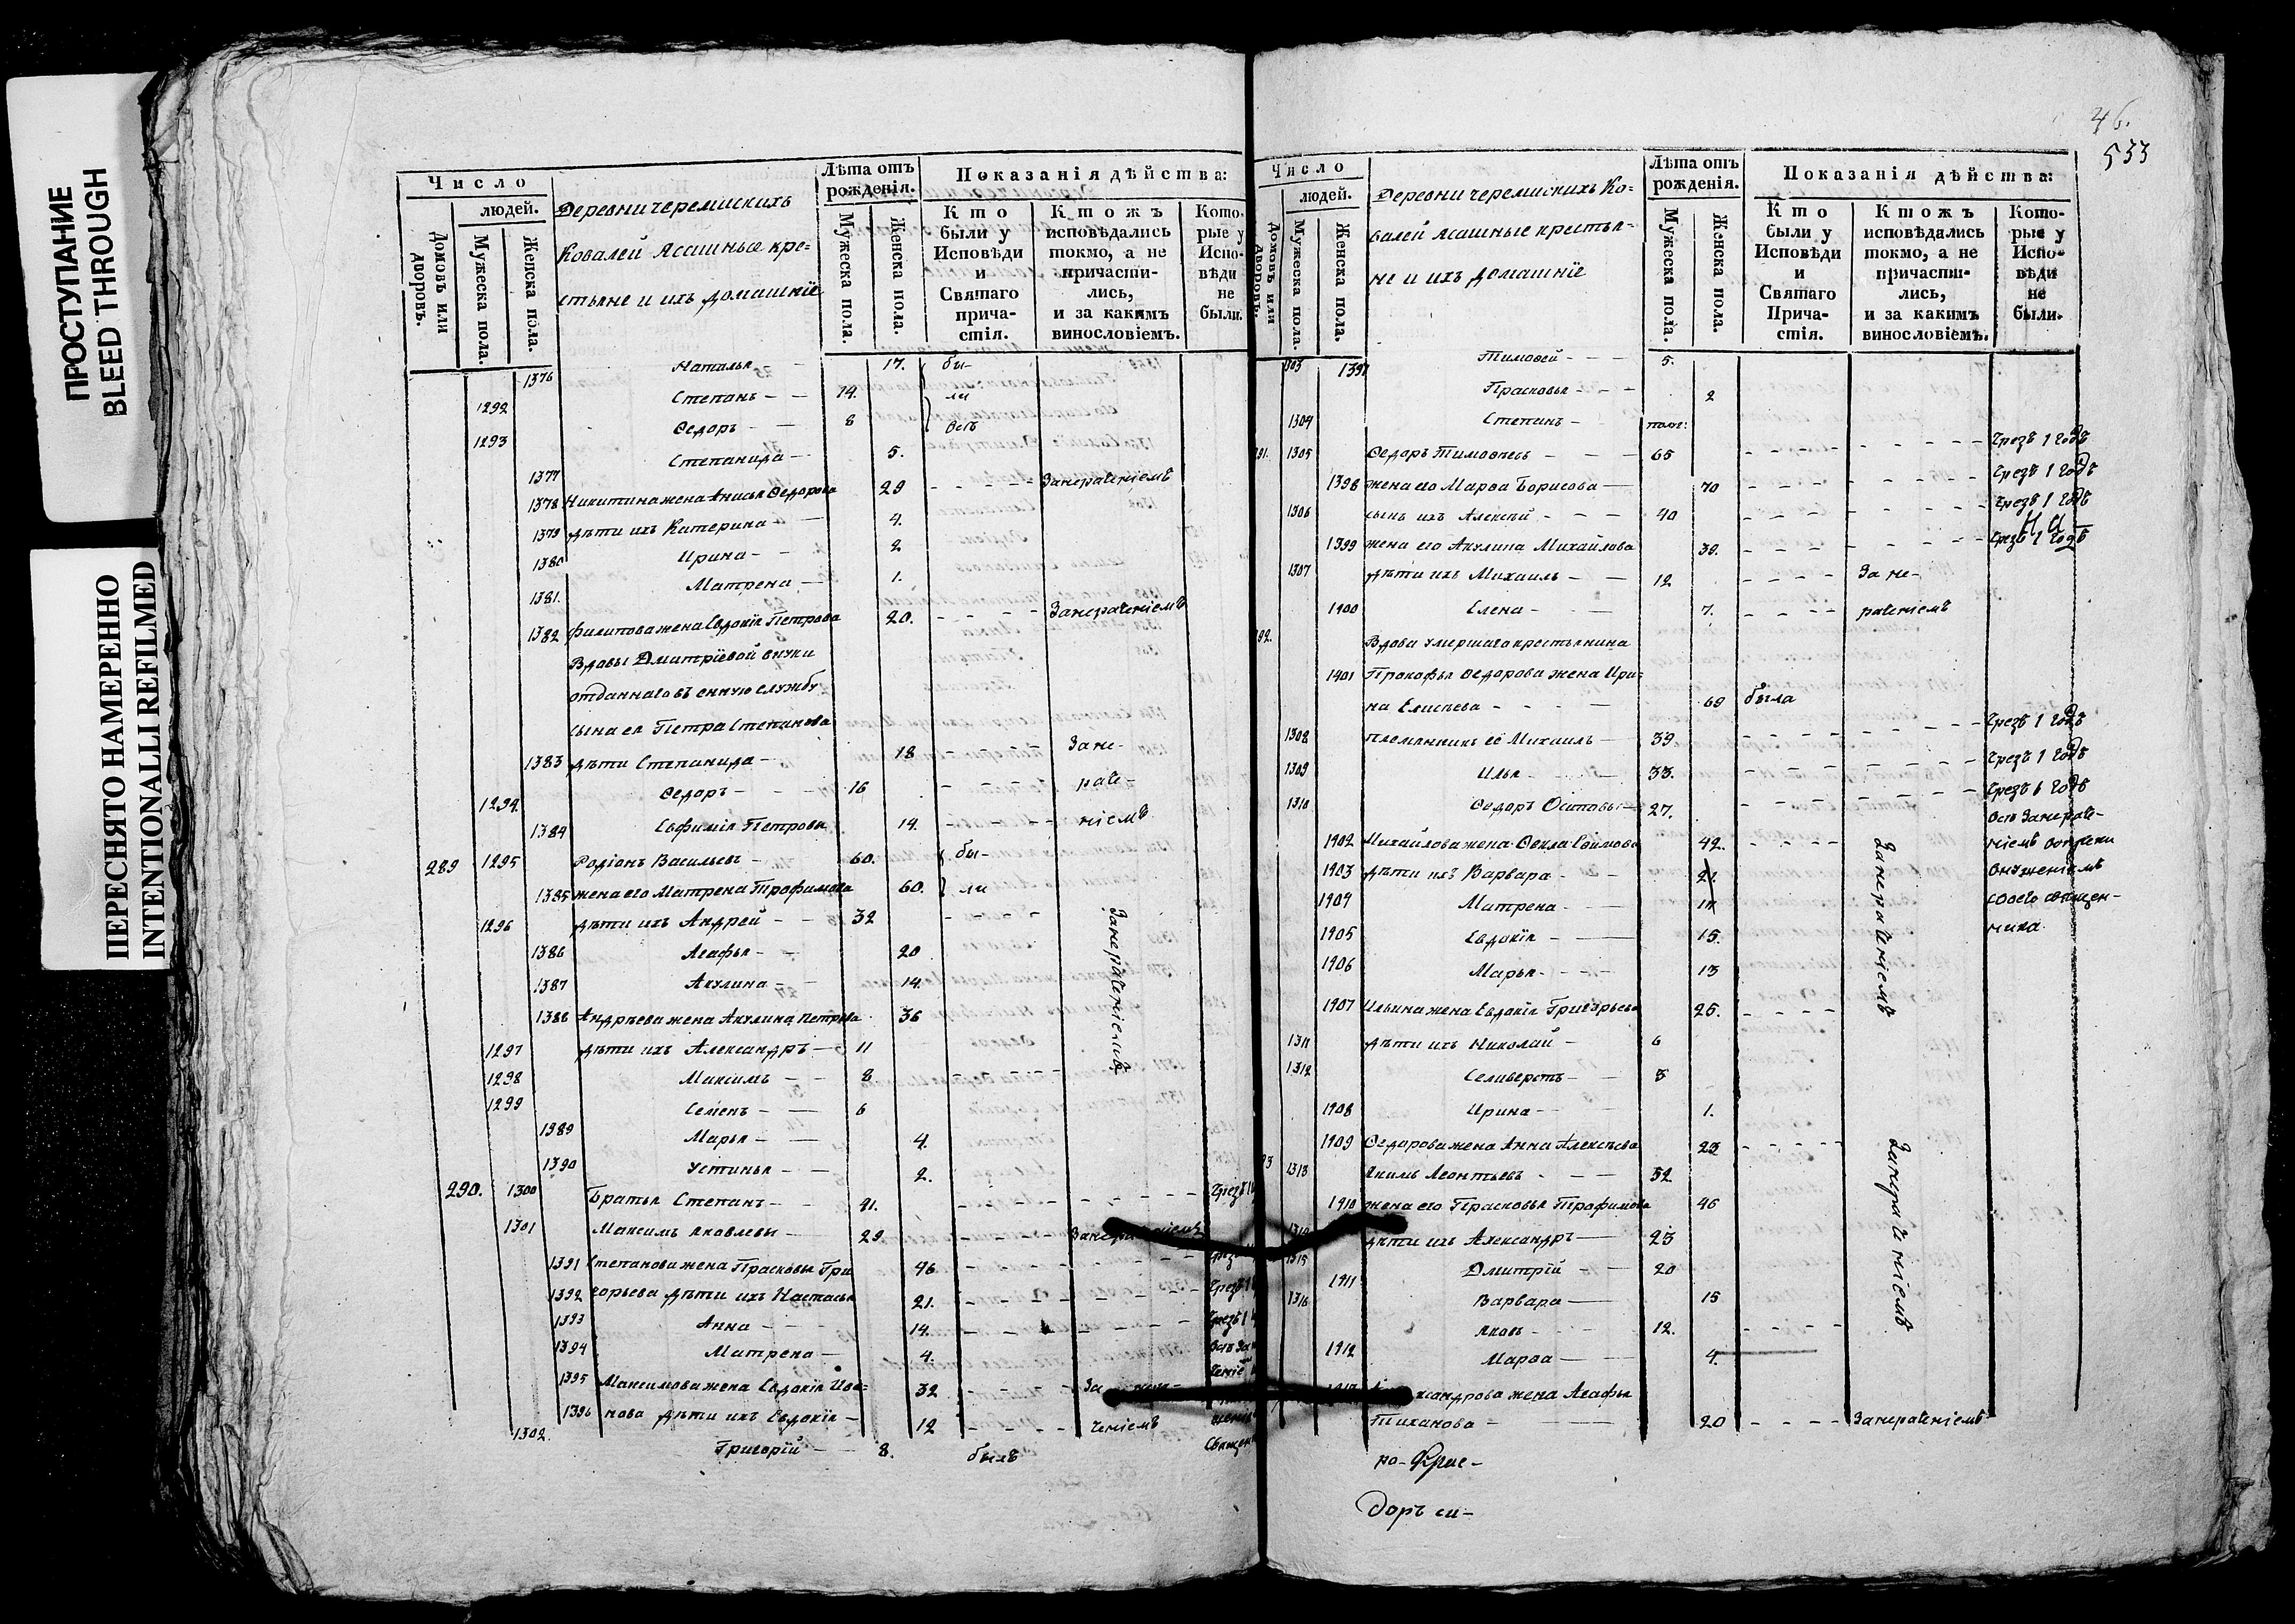 ПРОСТУПАНИЕ
BLEED THROUGH
ПЕРЕСНЯТО НАМЕРЕННО
INTENTIONALLI REFILMED
Число
людей.
Домовъ или дворовъ.
Мужеска пола.
Женска пола.
Деревни черемискихъ
Ковалей Ясашные кре=
стьяне и ихъ домашнїе
Лѣта отъ рожденія.
Мужеска пола.
Женска пола.
Показанія дѣйства:
Кто были у Исповѣди и Святаго прича-стія.
Ктожъ исповѣдались токмо, а не причасти-лись, и за какимъ винословіемъ.
Кото-рые у Испо-вѣди не были.
1376 Наталья 17. бы-
1292 Степанъ 14. ли
1293 Ѳедоръ 8 всѣ
1377 Степанида 5.
1378 Никитина жена Анисья Ѳедорова 29 Занераченіемъ
1379 дѣти ихъ Катерина 4.
1380 Ирина 2
1381. Матрена 1.
1382 Филипова жена Евдокія Петрова 20. Занераченіемъ
Вдовы Дмитрїевой внуки
отданнаго въ
службу
сына ея Петра Степанова
1383 дѣти Степанида 18 Зане-
1294. Ѳедоръ 16 раче-
1384 Евфимія Петровы 14. ніемъ
289 1295 Родіонъ Васильевъ 60. бы-
1385 жена его Матрена Трофимова 60. ли
1296 дѣти ихъ Андрей 32
1386 Агафья 20
1387 Акулина 14.
Занераченіемъ
1388 Андрѣева жена Акулина Петрова 36
1297 дѣти ихъ Александръ 11
1298 Максимъ 8
1299 Семенъ 6
1389 Марья 4.
1390 Устинья 2.
290. 1300 Братья Степанъ 41.
1301 Максимъ Яковлевы 29
1391 Степанова жена Прасковья Гри 46
1392 горьева дѣти ихъ Настасья 21.
1393 Анна 14.
1394 Матрена 4.
1395 Максимова жена Евдокія Ива= 32
1396 нова дѣти ихъ Евдокія 12 ченіемъ
1302. Григорій 8. былъ
46.
533
Число
людей.
Домовъ или дворовъ.
Мужеска пола.
Женска пола.
Деревни черемискихъ Ко=
валей ясашные крестья=
не и ихъ домашнїе
Лѣта отъ рожденія.
Мужеска пола.
Женска пола.
Показанія дѣйства:
Кто были у Исповѣди и Святаго Прича-стія.
Ктожъ исповѣдались токмо, а не причасти-лись, и за какимъ винословіемъ.
Кото-рые у Испо-вѣди не были.
1397 Тимоѳей 5.
Прасковья 2
1304 Степанъ
1305 Ѳедоръ Тимоѳеевъ 65 Чрезъ 1 годъ
1398 жена его Марѳа Борисова 70 Чрезъ 1 годъ
1306 сынъ ихъ Алексѣй 40 Чрезъ 1 годъ
1399 жена его Акулина Михайлова 39. Чрезъ 1 годъ
1307 дѣти ихъ Михаилъ 12 Зане-
1400 Елена 7. раченіемъ
Вдова умершаго крестьянина
1401 Прокофья Ѳедорова жена Ири=
на Елисеева 69 была
1308 племянники ее Михаилъ 39 Чрезъ 1 годъ
1309 Илья 33. Чрезъ 1 годъ
1310 Ѳедоръ Осиповы 27. Чрезъ 6 годъ
всѣ занераче-
1402 Михайлова жена Ѳекла Ефимова 42. ніемъ
1403 дѣти ихъ Варвара 21.
1404 Матрена
своего священ-
1405 Евдокія 15. ника
1406 Марья 13
Занераченіемъ
1407 Ильина жена Евдокія Григорьева 25.
1311 дѣти ихъ Николай 6
1312 Селиверстъ 3
1408 Ирина 1.
1409 Ѳедорова жена Анна Алексѣева 23
1313 Якимъ Леонтьевъ 52
1410 жена его Прасковья Трофимова 46
1314 дѣти ихъ Александръ 23
1315 Дмитрій 20
1411 Варвара 15
1316 Яковъ 12.
1412 Марѳа 4.
Занераченіемъ
Александрова жена Агафья
Тиханова 20 Занераченіемъ